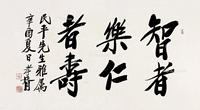 智者
樂仁
者壽
民平先生雅屬
辛酉夏日